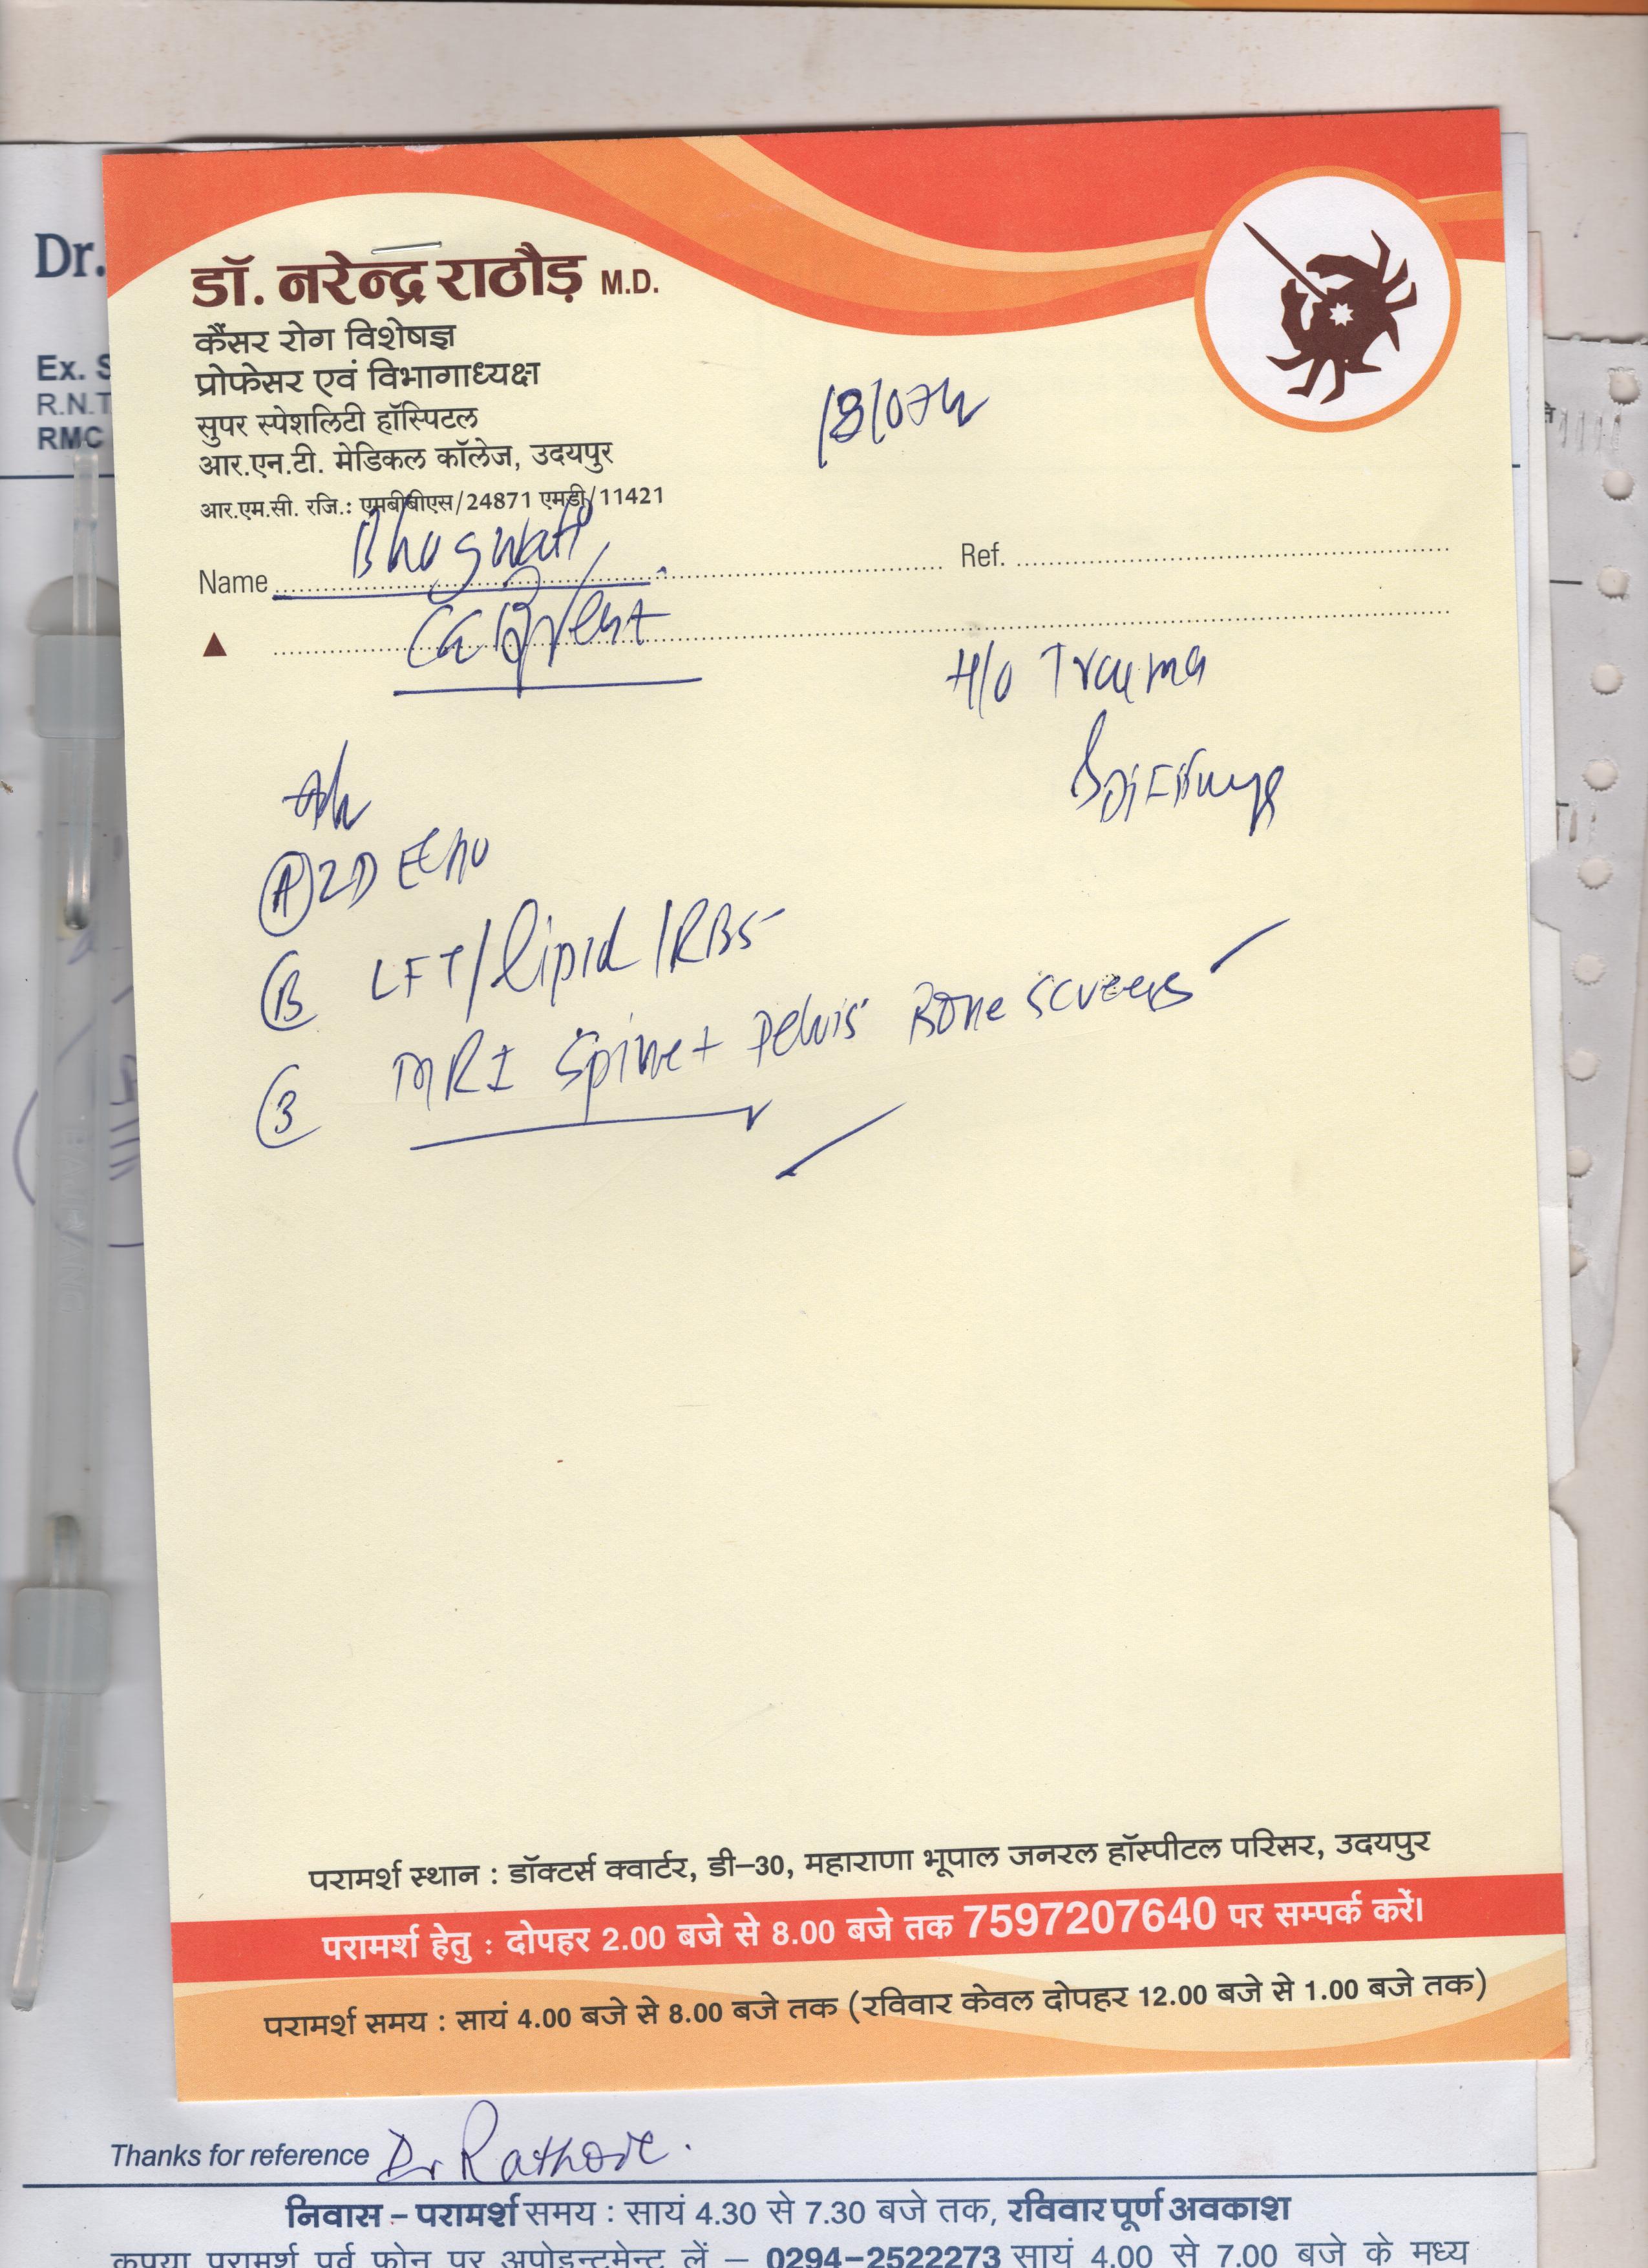 डॉ. नरेन्द्र राठौड़ M.D.
कैंसर रोग विशेषज्ञ
प्रोफेसर एवं विभागाध्यक्ष
सुपर स्पेशलिटी हॉस्पिटल
आर.एन.टी. मेडिकल कॉलेज, उदयपुर
आर.एम.सी. रजि.: एमबीबीएस/24871 एमडी/11421
Dr.
Ex.
R.N.T
RMC
Name Bhagwati
Ref.
H/o Trauma
A 2D Echo
B LFT/lipid/RBS
3 MRI Spine + Pelvis Bone screens
परामर्श स्थान : डॉक्टर्स क्वार्टर, डी–30, महाराणा भूपाल जनरल हॉस्पीटल परिसर, उदयपुर
परामर्श हेतु : दोपहर 2.00 बजे से 8.00 बजे तक 7597207640 पर सम्पर्क करें।
परामर्श समय : सायं 4.00 बजे से 8.00 बजे तक (रविवार केवल दोपहर 12.00 बजे से 1.00 बजे तक)
Thanks for reference Dr Rathore.
निवास – परामर्श समय : सायं 4.30 से 7.30 बजे तक, रविवार पूर्ण अवकाश
कृपया परामर्श पूर्व फोन पर अपोइन्टमेन्ट लें – 0294–2522273 सायं 4.00 से 7.00 बजे के मध्य